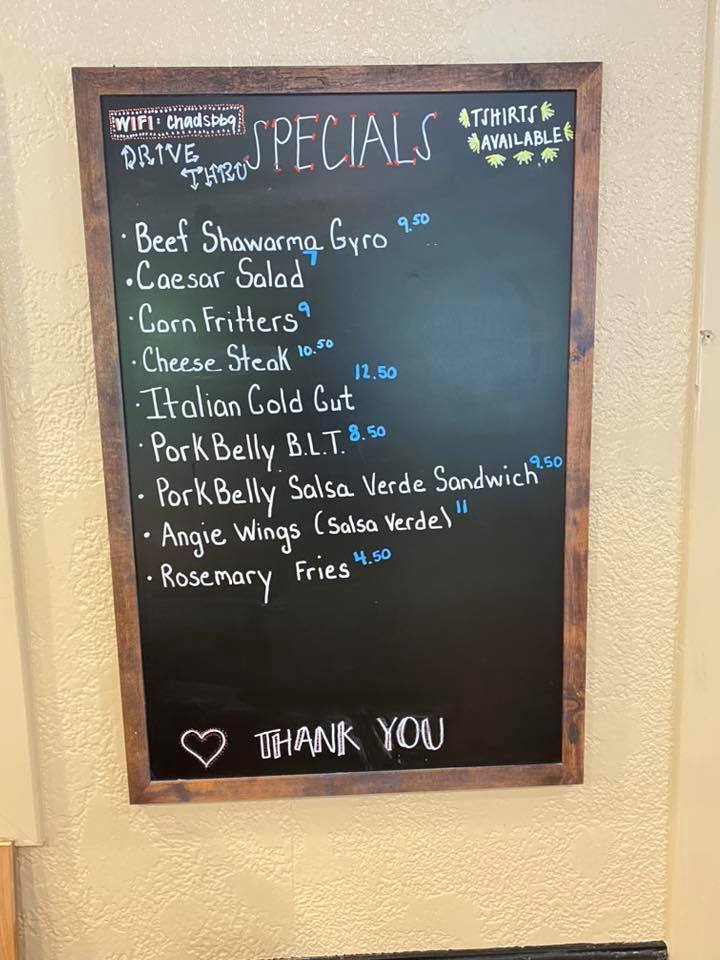 WIFI: Chadsbbq
DRIVE
THRU
SPECIALS
TSHIRTS
AVAILABLE
· Beef Shawarma Gyro 9.50
· Caesar Salad 7
· Corn Fritters 9
· Cheese Steak 10.50
· Italian Cold Cut 12.50
· Pork Belly B.L.T. 8.50
· Pork Belly Salsa Verde Sandwich 9.50
· Angie Wings (Salsa Verde) 11
· Rosemary Fries 4.50
THANK YOU